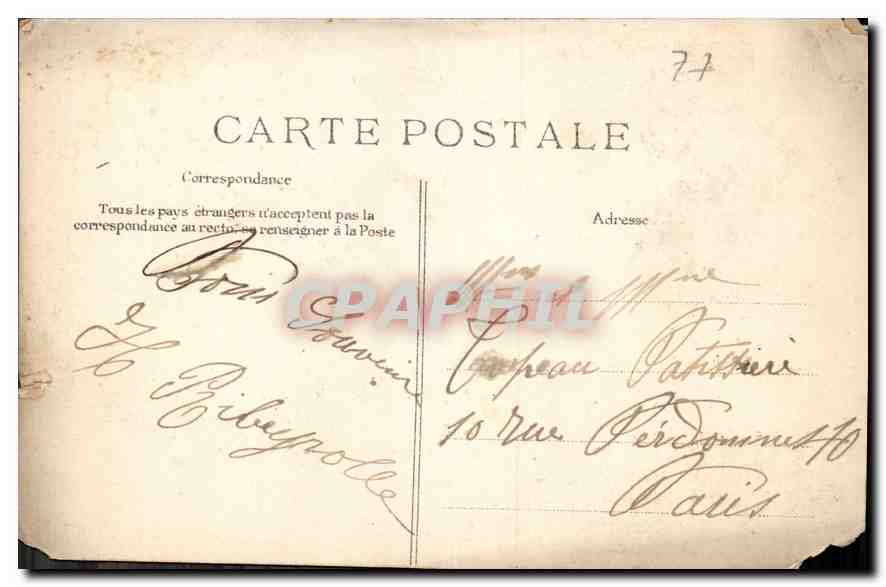 77
CARTE POSTALE
Correspondance
Tous les pays étrangers n'acceptent pas la
correspondance au recto, se renseigner à la Poste
Adresse
Bons
Souvenirs
H Ribeyrolle
et Mme
Patissier
10 rue Perdonnet 10
Paris
CPAPHIL